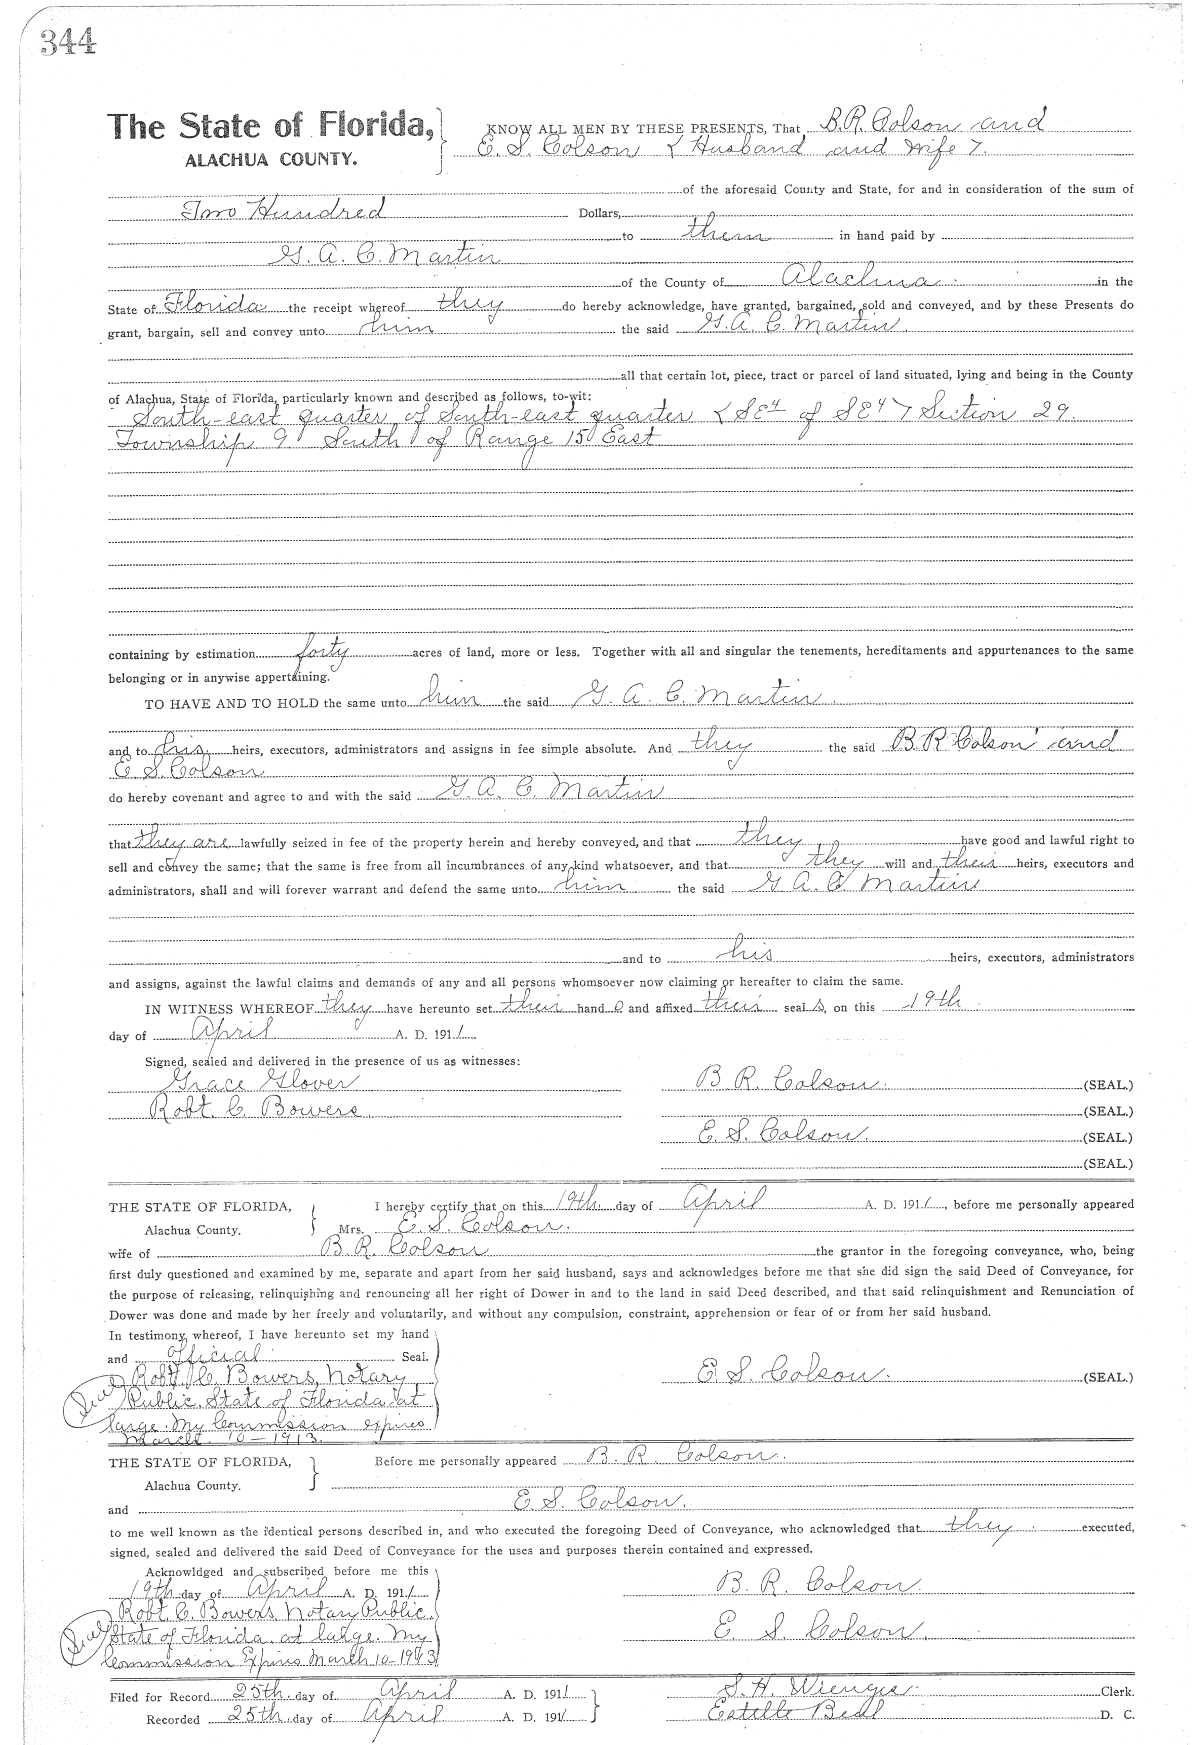 344
The State of Florida,
ALACHUA COUNTY.
KNOW ALL MEN BY THESE PRESENTS, That B.R. Colson and
E. S. Colson ( Husband and Wife ).
of the aforesaid County and State, for and in consideration of the sum of
Two Hundred Dollars,
to them in hand paid by
G. A. C. Martin
of the County of Alachua in the
State of Florida the receipt whereof they do hereby acknowledge, have granted, bargained, sold and conveyed, and by these Presents do
grant, bargain, sell and convey unto him the said G. A. C. Martin
all that certain lot, piece, tract or parcel of land situated, lying and being in the County
of Alachua, State of Florida, particularly known and described as follows, to-wit:
South-east quarter of South-east quarter ( SE4 of SE4 ) Section 29.
Township 9 South of Range 15 East
containing by estimation forty acres of land, more or less. Together with all and singular the tenements, hereditaments and appurtenances to the same
belonging or in anywise appertaining.
TO HAVE AND TO HOLD the same unto him the said G. A. C. Martin
and to his heirs, executors, administrators and assigns in fee simple absolute. And they the said B R Colson and
E S. Colson
do hereby covenant and agree to and with the said G. A. C. Martin
that they are lawfully seized in fee of the property herein and hereby conveyed, and that they have good and lawful right to
sell and convey the same; that the same is free from all incumbrances of any kind whatsoever, and that they will and their heirs, executors and
administrators, shall and will forever warrant and defend the same unto him the said G A. C. Martin
and to his heirs, executors, administrators
and assigns, against the lawful claims and demands of any and all persons whomsoever now claiming or hereafter to claim the same.
IN WITNESS WHEREOF they have hereunto set their hand s and affixed their seal s, on this 19th
day of April A. D. 1911
Signed, sealed and delivered in the presence of us as witnesses:
Grace Glover B R. Colson. (SEAL.)
Robt. C. Bowers (SEAL.)
E. S. Colson. (SEAL.)
(SEAL.)
THE STATE OF FLORIDA, I hereby certify that on this 19th. day of April A. D. 1911, before me personally appeared
Alachua County. Mrs. E. S. Colson.
wife of B. R. Colson the grantor in the foregoing conveyance, who, being
first duly questioned and examined by me, separate and apart from her said husband, says and acknowledges before me that she did sign the said Deed of Conveyance, for
the purpose of releasing, relinquishing and renouncing all her right of Dower in and to the land in said Deed described, and that said relinquishment and Renunciation of
Dower was done and made by her freely and voluntarily, and without any compulsion, constraint, apprehension or fear of or from her said husband.
In testimony whereof, I have hereunto set my hand
and official Seal.
E. S. Colson. (SEAL.)
Robt. C. Bowers, Notary
Seal Public. State of Florida at
large. My Commission expires
March. 10-1913.
THE STATE OF FLORIDA, Before me personally appeared B. R. Colson.
Alachua County.
and E S. Colson.
to me well known as the identical persons described in, and who executed the foregoing Deed of Conveyance, who acknowledged that they executed,
signed, sealed and delivered the said Deed of Conveyance for the uses and purposes therein contained and expressed.
Acknowldged and subscribed before me this
19th day of April A. D. 1911 B. R. Colson
Robt C. Bowers Notary Public.
Seal State of Florida. at large. My E. S. Colson.
Commission Expires March 10-1913
Filed for Record 25th. day of April A. D. 1911 S. H. Wienges. Clerk.
Recorded 25th. day of April A. D. 191/ Estelle Beall D. C.